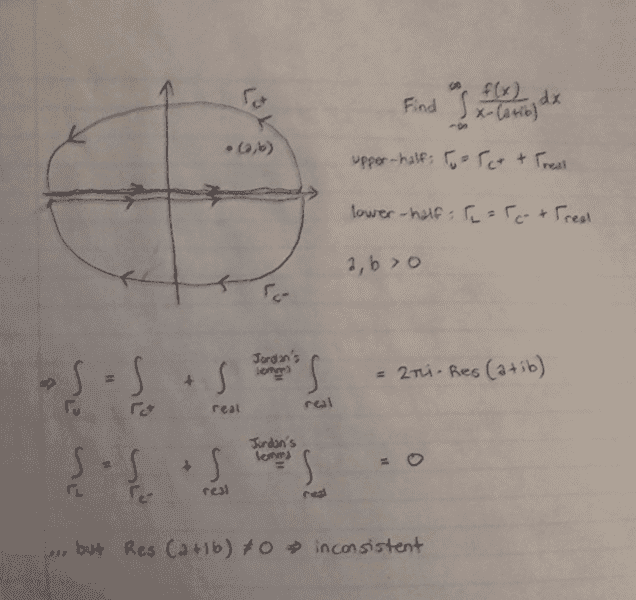 Γc+
(a,b)
Γc-
Find ∫_{-∞}^{∞} f(x)/(x-(a+ib)) dx
upper-half: Γu = Γc+ + Γreal
lower-half: ΓL = Γc- + Γreal
a, b > 0
⇒ ∫_{Γu} = ∫_{Γc+} + ∫_{real} Jordan's lemma = ∫_{real} = 2πi · Res(a+ib)
∫_{ΓL} = ∫_{Γc-} + ∫_{real} Jordan's lemma = ∫_{real} = 0
... but Res(a+ib) ≠ 0 ⇒ inconsistent